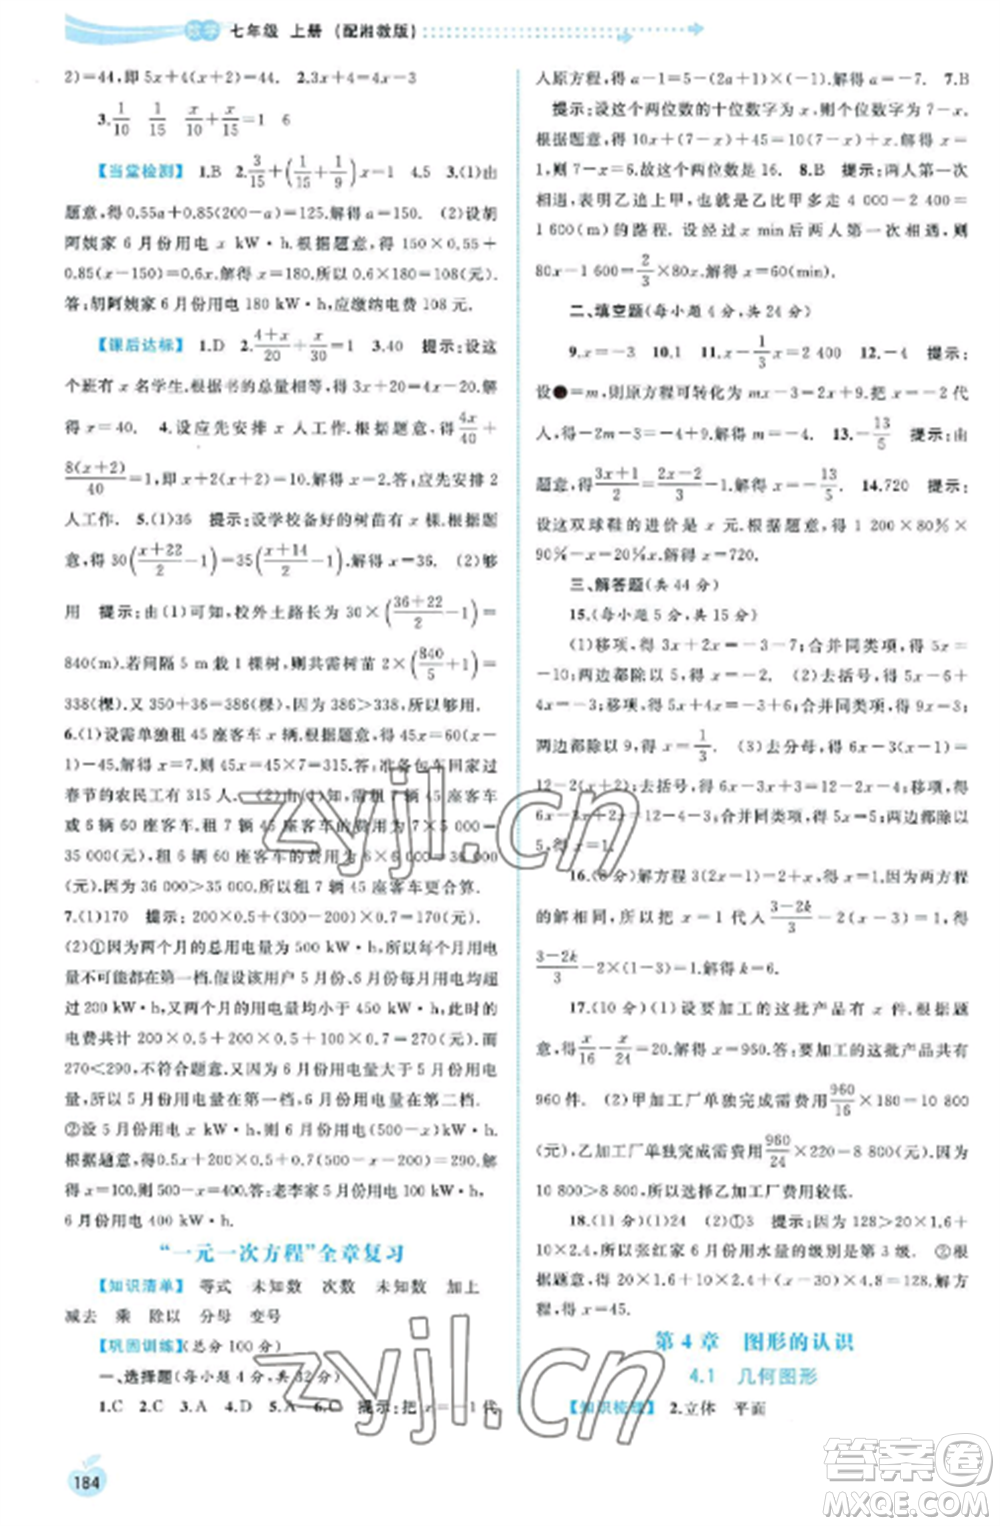 数学 七年级 上册 (配湘教版)
2)=44,即 5x+4x+2x=44. 2.3x+4x=21
3. 1/10 1/15 x/10+x/15=1 6
【当堂检测】 1.B 2. 3/15+(1/15+1/9)x=1 4.5 3.(1)由
题意,得 0.55a+0.85(200-a)=125.解得 a=150. (2)设胡
阿姨家 6 月份用电 x kW·h.根据题意,得 150×0.55+
0.85(x-150)=0.6x.解得 x=180.所以 0.6x=108.
答:胡阿姨家 6 月份用电 180 kW·h,应缴纳电费 108 元.
【课后达标】 1.D 2. (4+x)/20+x/30=1 3.40 提示:设这
个班有 x 名学生.根据书的总量相等,得 3x+20=4x-20.解
得 x=40. 4.设应先安排 x 人工作.根据题意,得 4x/40+
8(x+2)/40=1.解得 x=2.答:应先安排 2
人工作. 5.(1)36 提示:设学校备好的树苗有 x 棵.根据题意,
得 30((x+22)/2-1)=35((x+14)/2-1).解得 x=36. (2)够
用 提示:由(1)可知,校外土路长为 30×((36+22)/2-1)=
840(m).若间隔 5 m栽 1 棵树,则共需树苗 2×(840/5+1)=
338(棵).又 10×36=360(棵),因为 360>338,所以够用.
6.(1)设需单独租 45 座客车 x 辆.根据题意,得 45x=
春节的农民工有 315 人. (2)
或 6 辆 60 座客车.租 7 辆 45 座客车的费用为 7×5 000=
35 000(元),租 6 辆 60 座客车的费用为 6×6 000=36 000(元).
因为 36 000>35 000,所以租 7 辆 45 座客车更合算.
7.(1)170 提示:200×0.5+200×0.35=170(元).
(2)①因为两个月的总用电量为 500 kW·h,所以每个月用电
量不可能都在第一档.假设该用户 5 月份、6 月份每月用电量
过 200 kW·h,又两个月的用电量均小于 450 kW·h,此时的
电费共计 200×0.5+200×0.5+100×0.7=270(元).而
270<290,不符合题意.又因为 5 月份用电量少于 6 月份用电
量,所以 5 月份用电量在第一档,6 月份用电量在第二档.
②设 5 月份用电 x kW·h,则 6 月份用电(500-x)kW·h.
根据题意,得0.5x+200×0.5+(500-x-200)×0.7=290.
解得 x=100.所以 500-x=400.答:老李家 5 月份用电 100 kW·h,
6 月份用电 400 kW·h.
“一元一次方程”全章复习
【知识清单】 等式 未知数 次数 未知数 加上
减去 乘 除以 分母 变号
【巩固训练】(总分 100 分)
一、选择题(每小题 4 分,共 32 分)
1.C 2.C 3.A 4.D 5.A 6.C 提示:把 x=-1 代
184
入原方程,得 a-1=5-(2a+1)×(-1).解得 a=-7. 7.B
提示:设这个两位数的十位数字为 x,则个位数字为 7-x.
根据题意,得 10x+(7-x)+45=10(7-x)+x.解得 x=
1,则 7-x=6.故这个两位数是 16. 8.B 提示:两人第一次
相遇,表明乙追上甲,就是乙比甲多走 4 000-2 400=
1 600(m)的路程. 设经过 x min后两人第一次相遇,得
80x-1 600=2/3×80x.解得 x=60(min).
二、填空题(每小题 4 分,共 24 分)
9.x=-3 10.1 11.x-1/3x=2 400 12.-4 提示:
设●=m,则原方程可转化为 mx-3=2x+9.把 x=-2 代
入,得-2m-3=-4+9.解得 m=-4. 13.-13/5 提示:由
题意,得 (3x+1)/2=(2x-2)/3-1.解得 x=-13/5. 14.720 提示:
设这双球鞋的进价是 x 元.根据题意,得 1 200×80%×
90%-x=20%x.解得 x=720.
三、解答题(共 44 分)
15.(每小题 5 分,共 15 分)
(1)移项,得 3x+2x=-7-3;合并同类项,得 5x=
-10;两边都除以 5,得 x=-2. (2)去括号,得 5x-6+
4x=-3;移项,得 5x+4x=-3+6;合并同类项,得 9x=3;
两边都除以 9,得 x=1/3. (3)去分母,得 6x-3(x-1)=
12-2(x+2);去括号,得 6x-3x+3=12-2x-4;移项,得
6x-3x+2x=12-4-3;合并同类项,得 5x=5;两边都除以
5,得 x=1.
16.(8分)解方程 3(2x-1)=2x+1,得 x=1.因为两方程
的解相同,所以把 x=1 代入 (3-2k)/3-2(x-3)=1,得
(3-2k)/3-2×(1-3)=1.解得 k=6.
17.(10 分)(1)设要加工的这批产品有 x 件.根据题
意,得 x/16-x/24=20.解得 x=960.答:要加工的这批产品有
960 件. (2)甲加工厂单独完成需费用 960/16×180=10 800
(元),乙加工厂单独完成需费用 960/24×220=8 800(元).因为
10 800>8 800,所以选择乙加工厂费用较低.
18.(11 分)(1)24 (2)①3 提示:128>20×1.6+
(40-20)×2.4,所以张红家 6 月份用水量为第 3 级. ②根据
题意,得 20×1.6+20×2.4+(x-40)×4.8=128.解方
程,得 x=45.
第 4 章 图形的认识
4.1 几何图形
【知识梳理】 2.立体 平面
zyjl.cn
zyjl.cn
答案圈
MXQE.COM